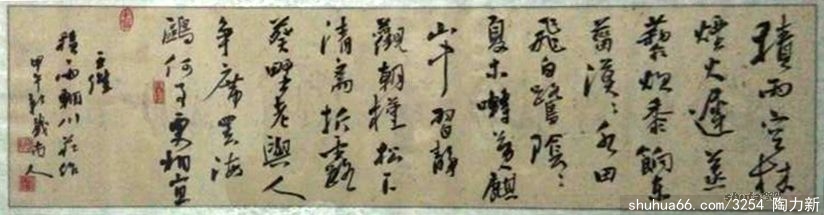 積雨空林
煙火遲蒸
藜炊黍餉東
菑漠〻水田
飛白鷺陰〻
夏木囀黃鸝
山中習靜
觀朝槿松下
清齋折露
葵野老與人
爭席罷海
鷗何事更相
王維
積雨輞川莊作
甲午 人
shuhua66.com/3254 陶力新